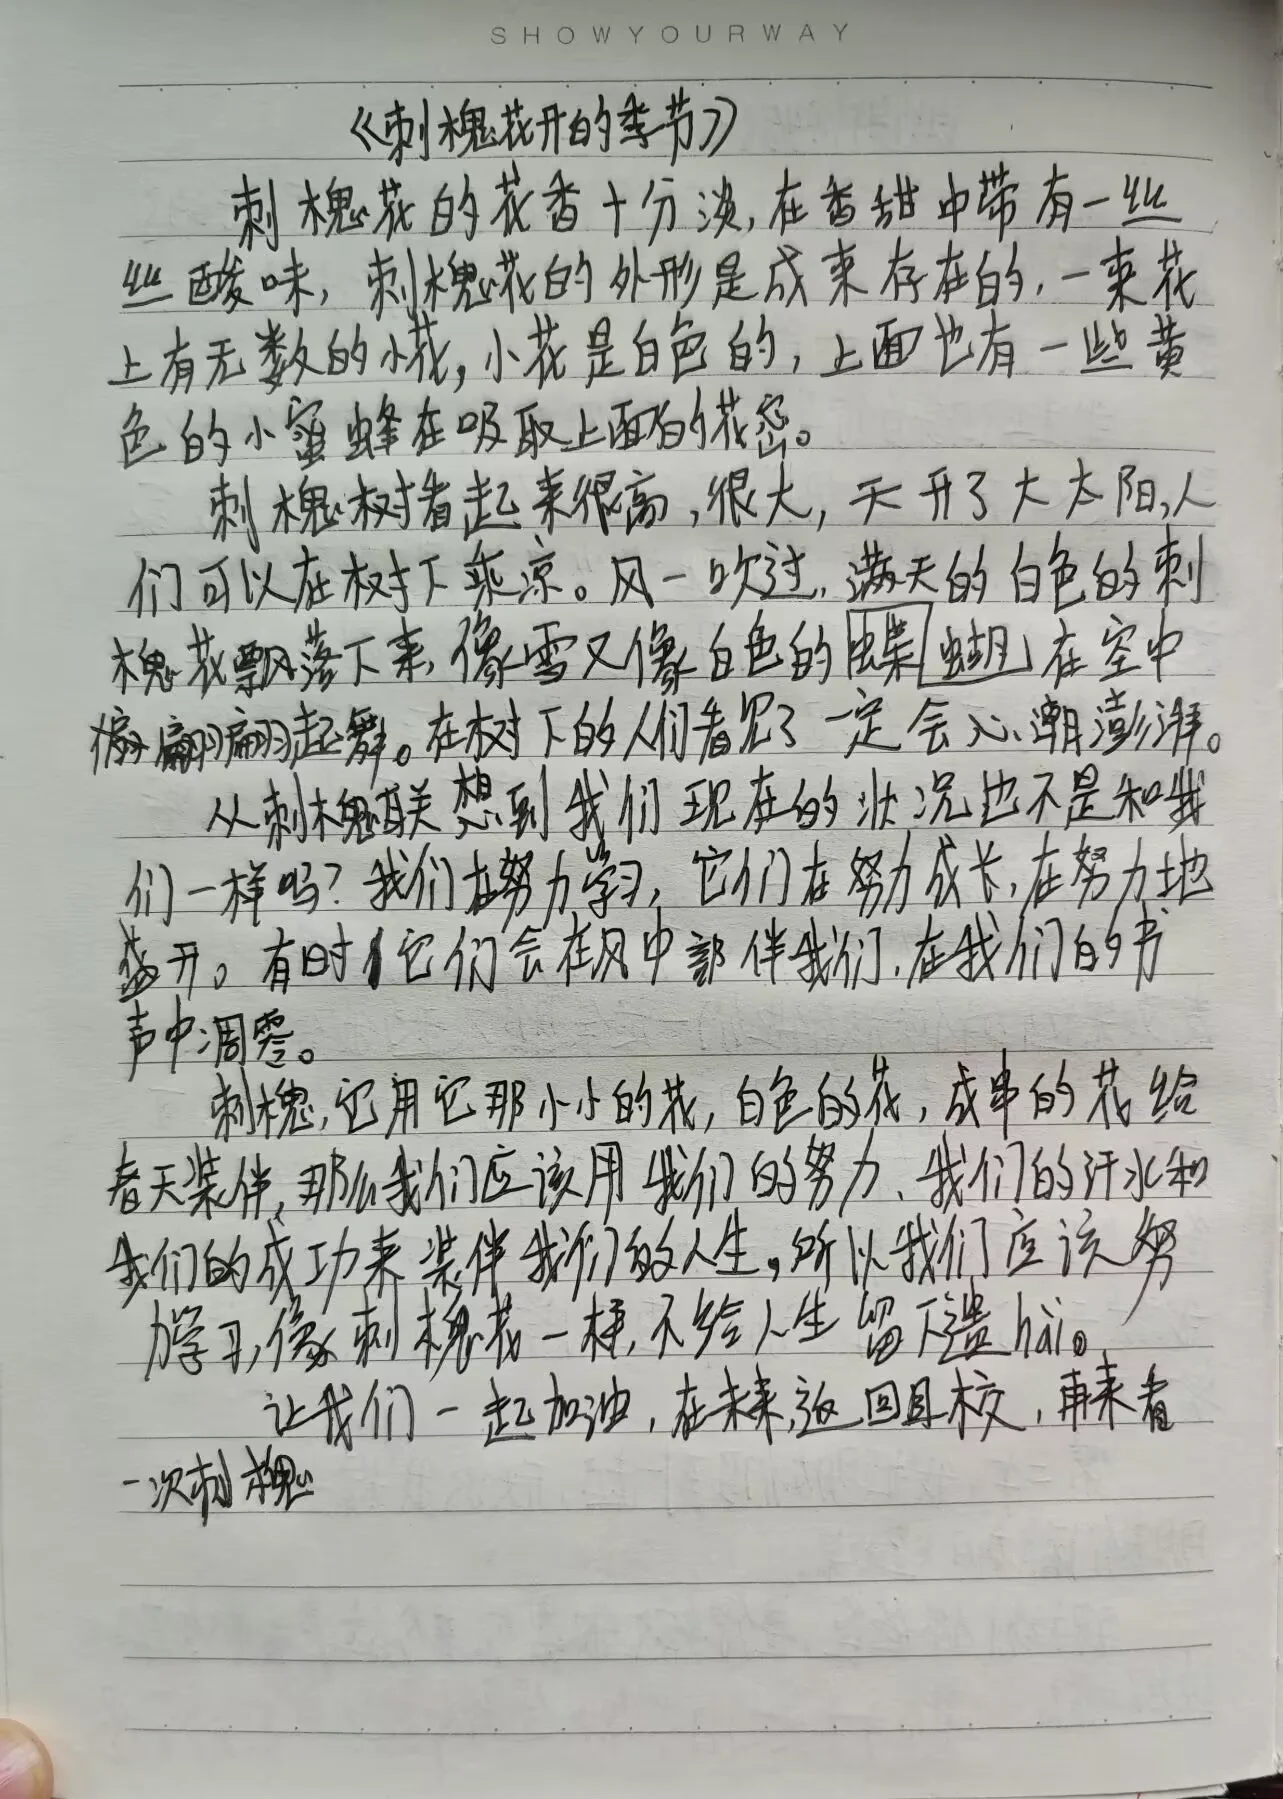 SHOWYOURWAY
《刺槐花开的季节》
刺槐花的花香十分淡，在香甜中带有一丝
丝酸味，刺槐花的外形是成束存在的，一束花
上有无数的小花，小花是白色的，上面也有一些黄
色的小蜜蜂在吸取上面的花密。
刺槐树看起来很高，很大，天开了大太阳，人
们可以在树下乘凉。风一吹过，满天的白色的刺
槐花飘落下来，像雪又像白色的蝶蝴在空中
翩翩起舞。在树下的人们看见了一定会心潮澎湃。
从刺槐联想到我们现在的状况也不是和我
们一样吗？我们在努力学习，它们在努力成长，在努力地
盛开。有时它们会在风中部伴我们，在我们的书
声中凋零。
刺槐，它用它那小小的花，白色的花，成串的花给
春天装伴，那么我们应该用我们的努力、我们的汗水和
我们的成功来装伴我们的人生，所以我们应该努
力学习，像刺槐花一样，不给人生留下遗hai。
让我们一起加油，在未来，返回母校，再来看
一次刺槐